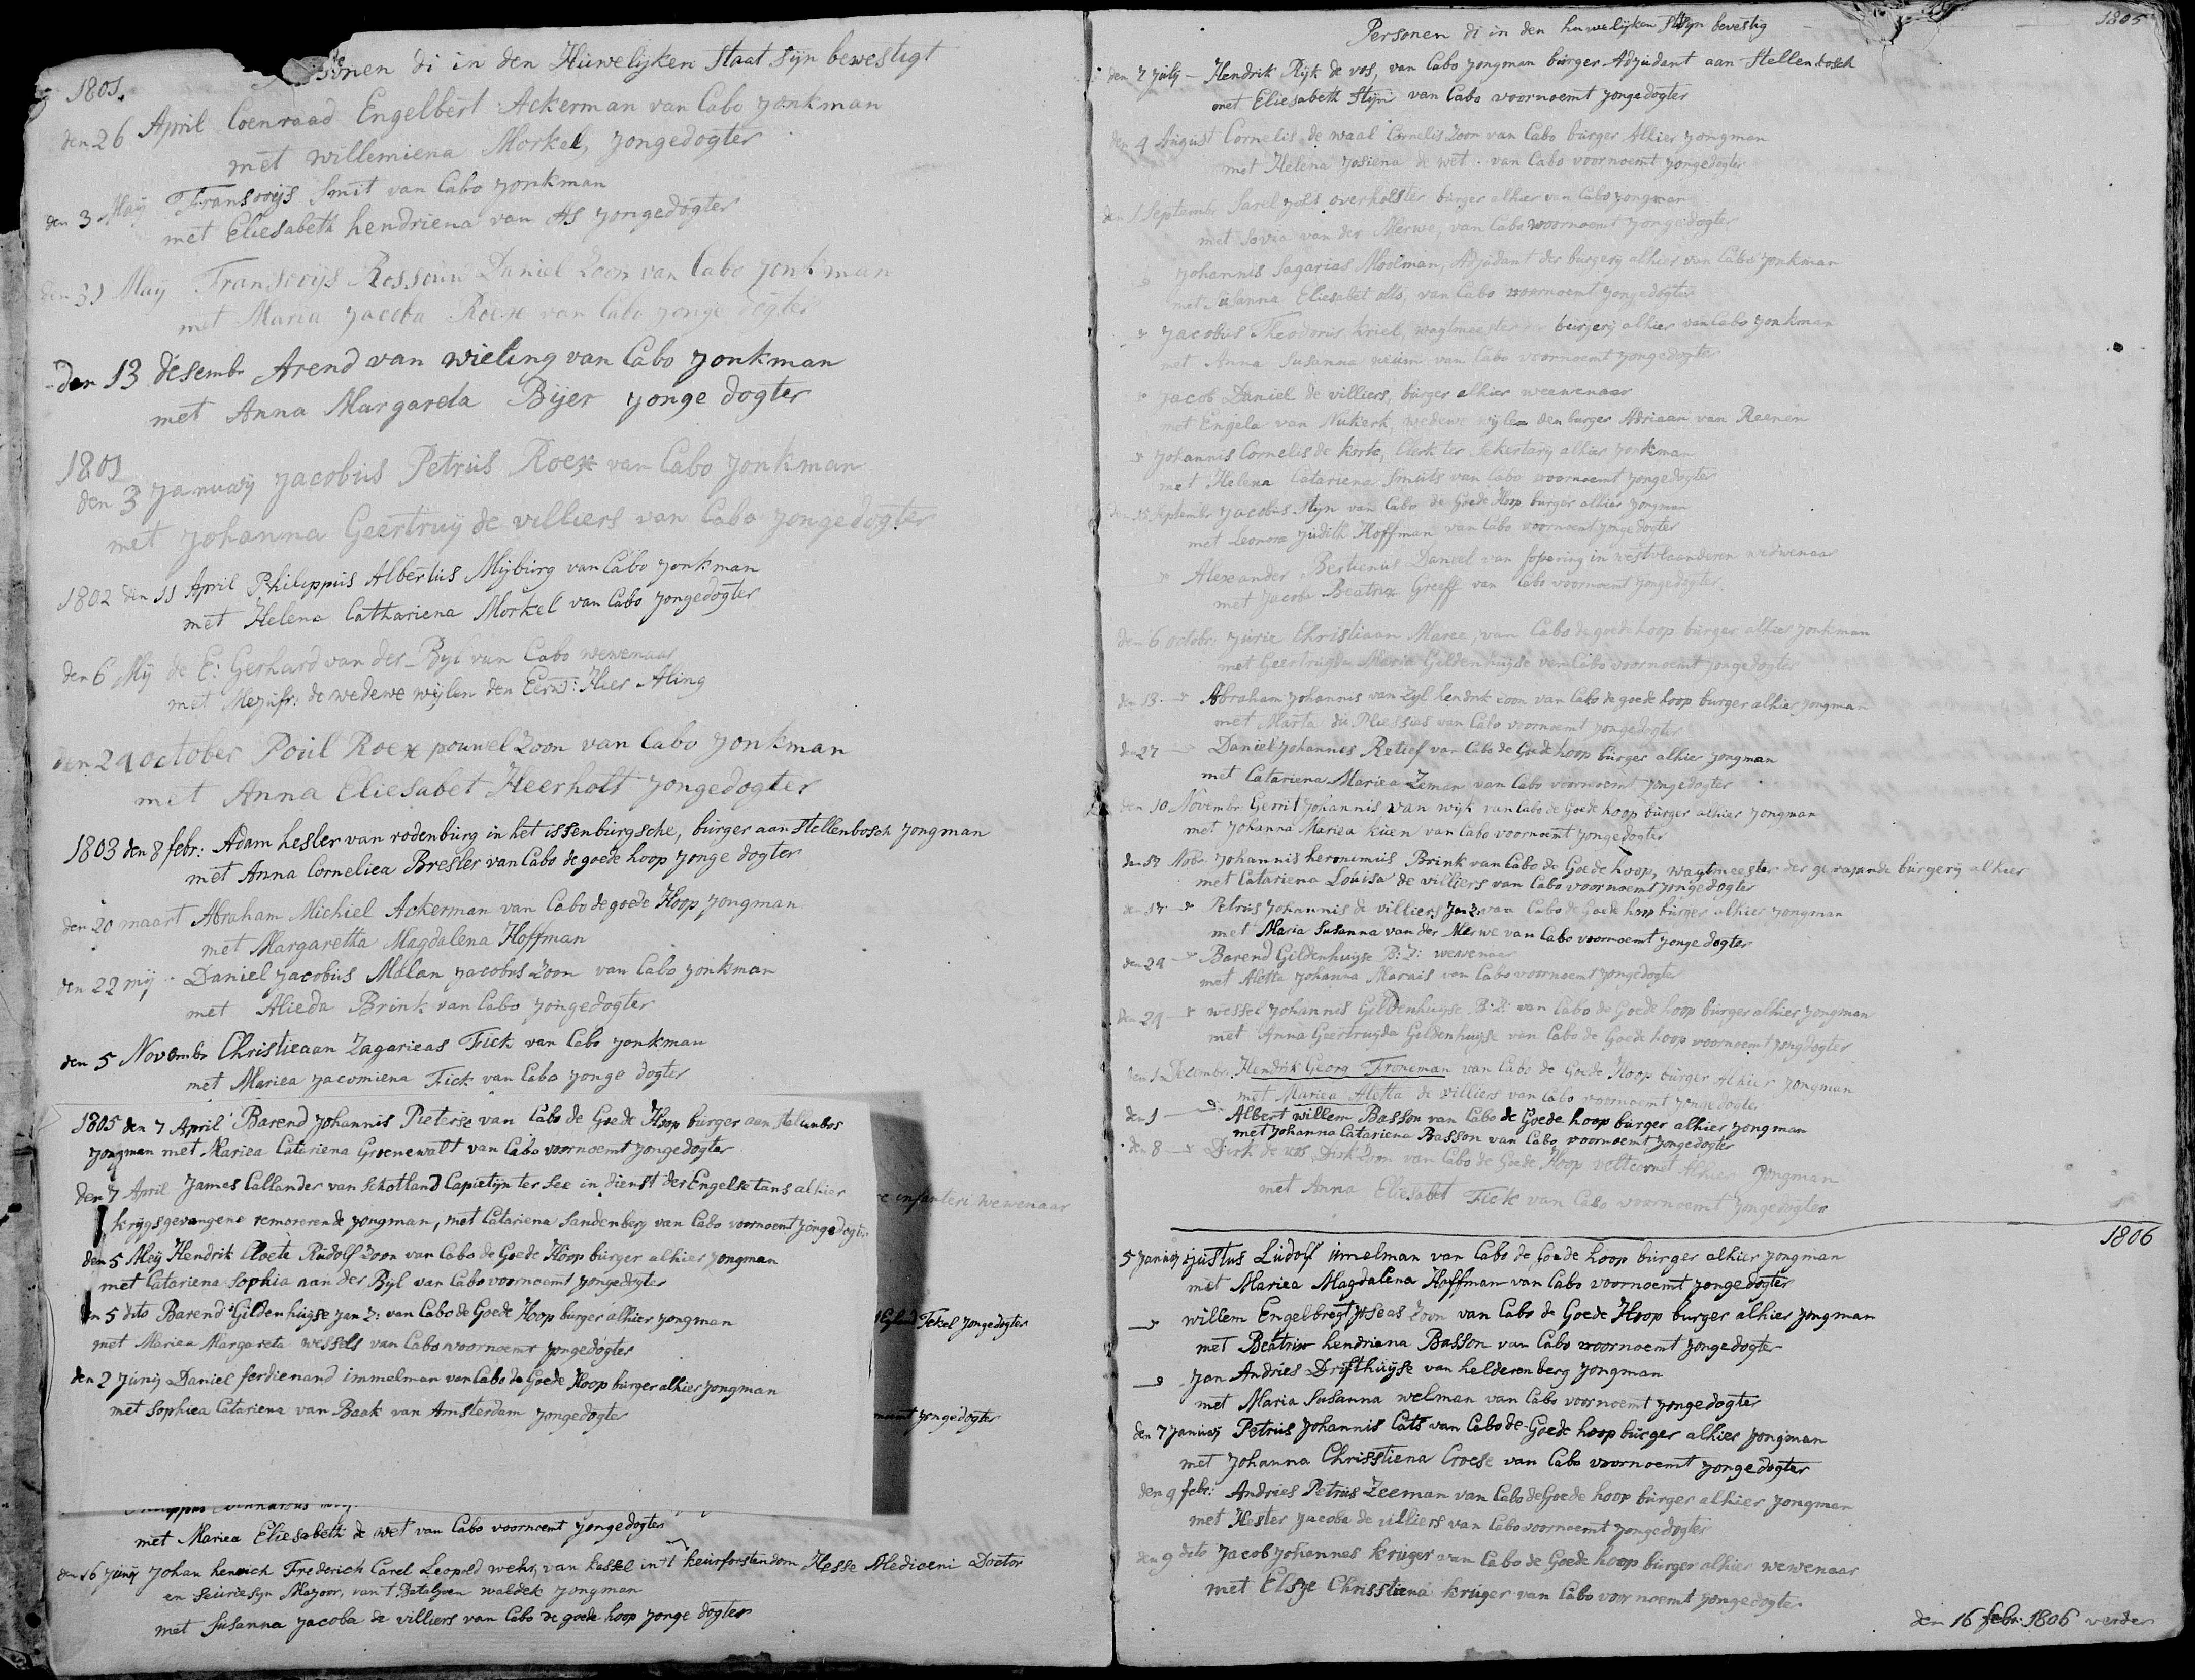 1801.
onen di in den Huwelijken Staat sijn bewestigt
den 26 April Coenraad Engelbert Ackerman van Cabo Jonkman
met willemiena Morkel, Jongedogter
den 3 Maij Fransooijs Smit van Cabo Jonkman
met Eliesabeth hendriena van As Jongedogter
den 31 Maij Fransooijs Rossouw Daniel Zoon van Cabo Jonkman
met Maria Jacoba Roex van Cabo Jonge dogter
den 13 desembr Arend van wieling van Cabo Jonkman
met Anna Margareda Bijer Jonge dogter
1801
den 3 Januarij Jacobus Petrus Roex van Cabo Jonkman
met Johanna Geertruij de villiers van Cabo Jongedogter
1802 den 11 April Philippus Albertus Mijburg van Cabo Jonkman
met Helena Cathariena Morkel van Cabo Jongedogter
den 6 Mij de E: Gerhard van der Byl van Cabo wewenaar
met Mejufr: de wedewe wijlen den Eerw: Heer Aling
den 24 october Poul Roex pouwel Zoon van Cabo Jonkman
met Anna Eliesabet Heerholt Jongedogter
1803 den 8 febr: Adam hesler van rodenburg in het issenburgsche, burger aan Stellenbosch Jongman
met Anna Corneliea Bresler van Cabo de goede hoop Jonge dogter
den 20 maart Abraham Michiel Ackerman van Cabo de goede Hoop Jongman
met Margaretta Magdalena Hoffman
den 22 mij Daniel Jacobus Malan Jacobus Zoon van Cabo Jonkman
met Alieda Brink van Cabo Jongedogter
den 5 Novembr Christieaan Zagarieas Fick van Cabo Jonkman
met Mariea Jacomiena Fick van Cabo Jonge dogter
1805 den 7 April Barend Johannis Pieterse van Cabo de Goede Hoop burger aan Stellenbos
Jongman met Mariea Catariena Groenewalt van Cabo voornoemt Jongedogter
den 7 April James Callander van Schotland Capietijn ter See in dienst der Engelse tans alhier
krijgsgevangene remorerende Jongman, met Catariena Sandenberg van Cabo voornoemt Jongedogter
e infanteri wewenaar
den 5 Meij Hendrik Cloete Rudolf Zoon van Cabo de Goede Hoop burger alhier Jongman
met Catariena Sophia van der Byl van Cabo voornoemt Jongedogter
den 5 dito Barend Gildenhuijse Jan Z: van Cabo de Goede Hoop burger alhier Jongman
Tekel Jongedogter
met Mariea Margareta wessels van Cabo voornoemt Jongedogter
den 2 Junij Daniel ferdienand immelman van Cabo de Goede Hoop burger alhier Jongman
met Sophiea Catariena van Baak van Amsterdam Jongedogter
noemt Jongedogter
met Mariea Eliesabeth de wet van Cabo voornoemt Jongedogter
den 16 Junij Johan henrich Frederich Carel Leopold wehr, van kassel in 't keurforstendom Hesse Mediceni Doctor
en Seuriesyn Mayoor, van t Bataljoen waldek Jongman
met Susanna Jacoba de villiers van Cabo de goede hoop Jonge dogter
Personen di in den huwelijken St sijn bevestig
1805
den 7 Julij - Hendrik Rijk de vos, van Cabo Jongman burger Adjudant aan Stellenbosch
met Eliesabeth Stijn van Cabo voornoemt Jongedogter
den 4 August Cornelis de waal Cornelis Zoon van Cabo burger Alhier Jongman
met Helena Josiena de wet van Cabo voornoemt Jongedogter
den 1 Septembr Sarel Joses overholster burger alhier van Cabo Jongman
met Sovia van der Merwe, van Cabo voornoemt Jongedogter
Johannis Sagarias Moolman, Adjudant der burgerij alhier van Cabo Jonkman
met Susanna Eliesabet otto, van Cabo voornoemt Jongedogter
Jacobus Theodorus kriel, wagtmeester der burgerij alhier van Cabo Jonkman
met Anna Susanna van Cabo voornoemt Jongedogter
Jacob Daniel de villiers, burger alhier weewenaar
met Engela van Nukerk, wedewe wijlen den burger Adriaan van Reenen
Johannis Cornelis de korte, Clerk ter Sekertarij alhier Jonkman
met Helena Catariena Smuts van Cabo voornoemt Jongedogter
den 15 September Jacobus Stijn van Cabo de Goede Hoop burger alhier Jongman
met Leonora Judith Hoffman van Cabo voornoemt Jongedogter
Alexander Bertienus Daneel van in westvlaanderen wedwenaar
met Jacoba Beatrix Greeff van Cabo voornoemt Jongedogter
den 6 octobr: Jurie Christiaan Maree, van Cabo de goede hoop burger alhier Jonkman
met Geertruijda Maria Gildenhuijse van Cabo voornoemt Jongedogter
den 13 Abraham Johannis van Zijl hendrik zoon van Cabo de goede hoop burger alhier Jongman
met Marta du Plessies van Cabo voornoemt Jongedogter
den 27 Daniel Johannes Retief van Cabo de Goede hoop burger alhier Jongman
met Catariena Mariea Zeman van Cabo voornoemt Jongedogter
den 10 Novembr: Gerrit Johannis van wijk van Cabo de Goede hoop burger alhier Jongman
met Johanna Mariea kuen van Cabo voornoemt Jongedogter
den 17 Nobr. Johannis heronimus Brink van Cabo de Goede hoop, wagtmeester der gewapende burgerij alhier
met Catariena Louisa de villiers van Cabo voornoemt Jongedogter
den 17 Petrus Johannis de villiers Jan Z: van Cabo de Goede hoop burger alhier Jongman
met Maria Susanna van der Merwe van Cabo voornoemt Jonge dogter
den 24 Barend Gildenhuijse B: Z: wewenaar
met Aletta Johanna Marais van Cabo voornoemt Jongedogter
den 24 wessel Johannis Gildenhuijse B: Z: van Cabo de Goede hoop burger alhier Jongman
met Anna Geertruijda Gildenhuijse van Cabo de Goede hoop voornoemt Jongdogter
den 1 Decembr. Hendrik Georg Froneman van Cabo de Goede Hoop burger Alhier Jongman
met Mariea Aletta de villiers van Cabo voornoemt Jongedogter
den 1 Albert willem Basson van Cabo de Goede hoop burger alhier Jongman
met Johanna Catariena Basson van Cabo voornoemt Jongedogter
den 8 Dirk de vos Dirk Zoon van Cabo de Goede Hoop veltcornet Alhier Jongman
met Anna Eliesabet Fick van Cabo voornoemt Jongedogter
1806
5 Januij Justus Ludolf immelman van Cabo de Goede hoop burger alhier Jongman
met Mariea Magdalena Hoffman van Cabo voornoemt Jongedogter
willem Engelbregt Joseas Zoon van Cabo de Goede Hoop burger alhier Jongman
met Beatrix hendriena Basson van Cabo voornoemt Jongedogter
Jan Andries Drifthuijse van helderenberg Jongman
met Maria Susanna welman van Cabo voornoemt Jongedogter
den 7 Januij Petrus Johannis Cats van Cabo de Goede hoop burger alhier Jongman
met Johanna Chrisstiena Croese van Cabo voornoemt Jongedogter
den 9 febr: Andries Petrus Zeeman van Cabo de Goede hoop burger alhier Jongman
met Hester Jacoba de villiers van Cabo voornoemt Jongedogter
den 9 dito Jacob Johannes kruger van Cabo de Goede hoop burger alhier wewenaar
met Elsje Chrisstiena kruger van Cabo voornoemt Jongedogter
den 16 febr: 1806 verder